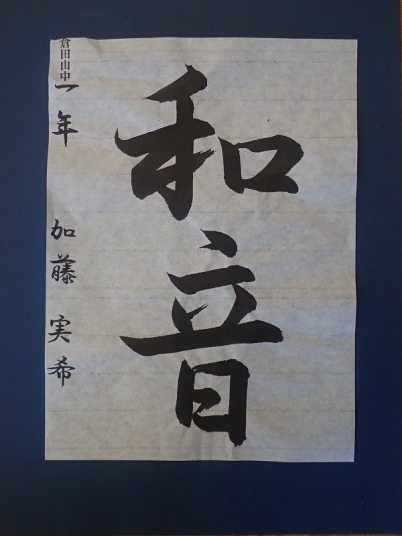 和音
倉田山中
一年 加藤実希